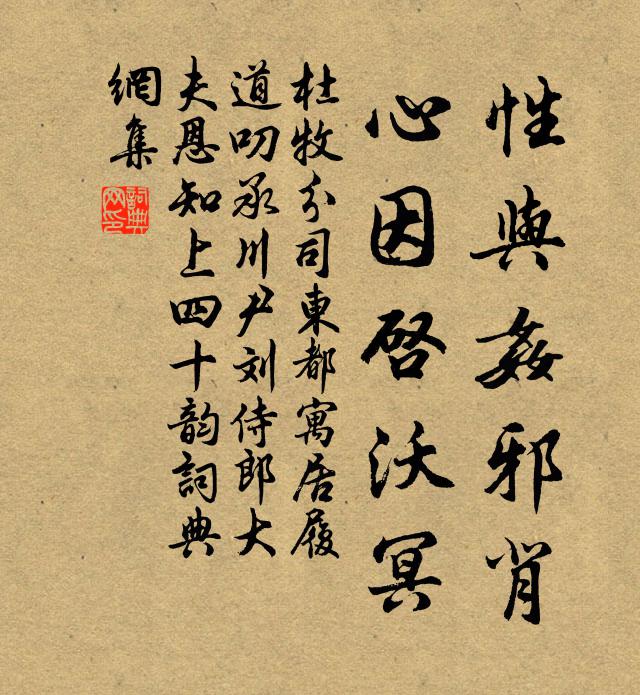 性與姦邪背
心因啓沃冥
杜牧分司東都寓居履
道叨承川尹刘侍郎大
夫恩知上四十韵詞典
網集
詞典网印